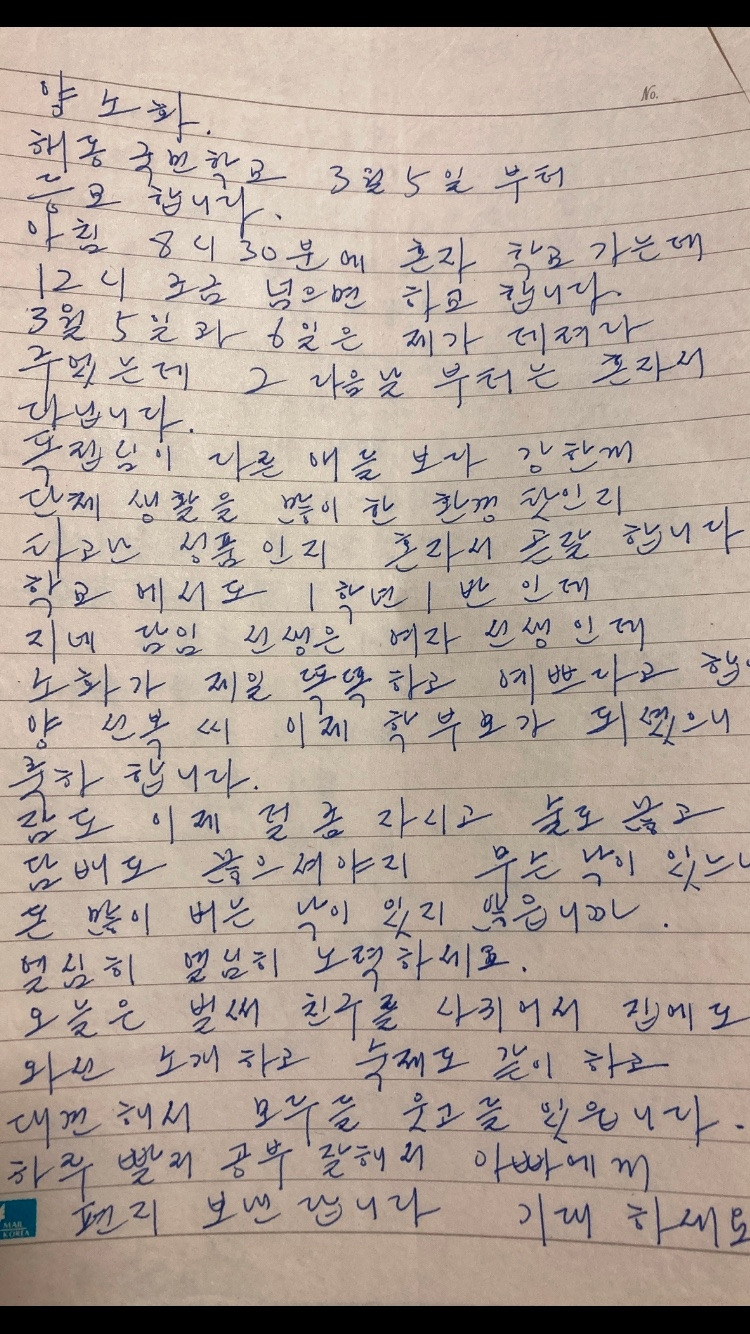 No.
양 노화.
해동 국민학교 3월 5일 부터
등교 합니다.
아침 8시 30분에 혼자 학교 가는데
12시 조금 넘으면 하교 합니다.
3월 5일과 6일은 제가 데려다
주었는데 그 다음날 부터는 혼자서
다닙니다.
독립심이 다른 애들 보다 강한게
단체 생활을 많이 한 환경 탓인지
타고난 성품인지 혼자서 곧잘 합니다
학교에서도 1학년 1반 인데
지네 담임 선생은 여자 선생인데
노화가 제일 똑똑하고 예쁘다고 합
양 선복씨 이제 학부모가 되셨으니
축하 합니다.
잠도 이제 덜 좀 자시고 술도 끊고
담배도 끊으셔야지 무슨 낙이 있느냐
돈 많이 버는 낙이 있지 않읍니까.
열심히 열심히 노력하세요.
오늘은 벌써 친구를 사귀어서 집에도
와선 소개하고 숙제도 같이 하고
대견해서 모두들 웃고들 있읍니다.
하루 빨리 공부 잘해서 아빠에게
편지 보낸답니다 기대 하세요
MAIL
KOREA